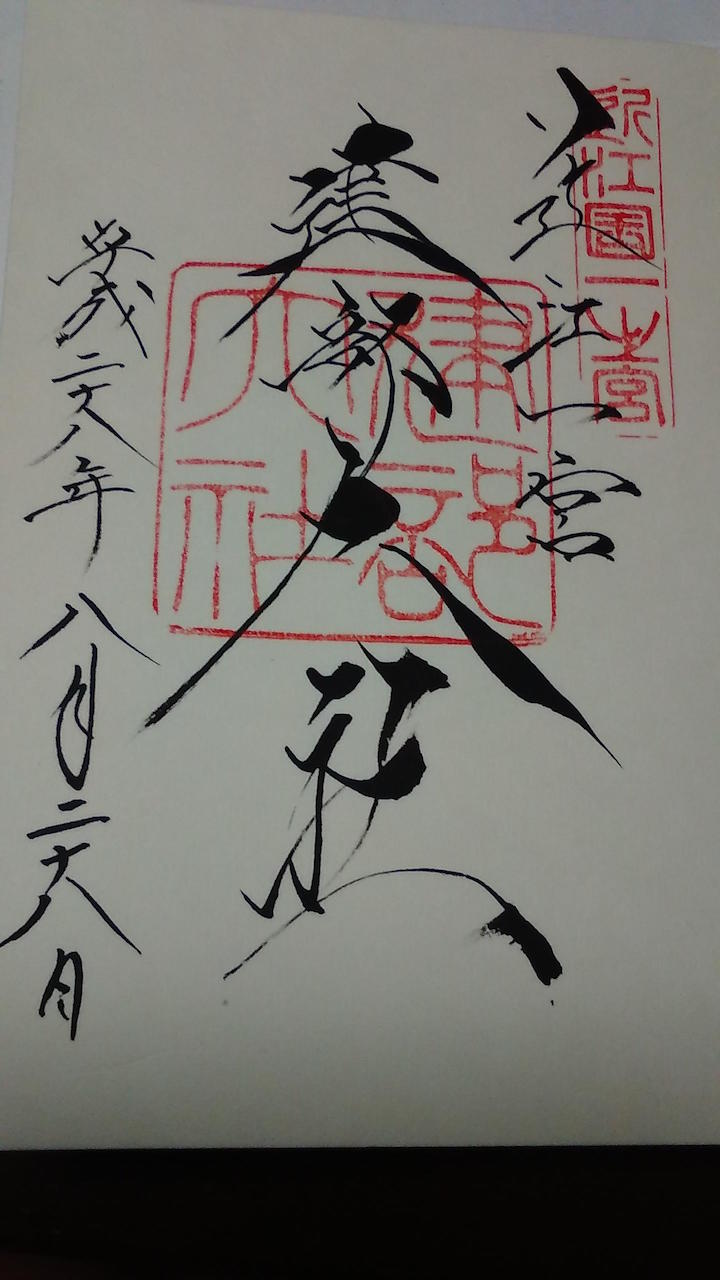 近江國一之宮
近江一宮
建部大社
建部大社
平成二十八年八月二十八日